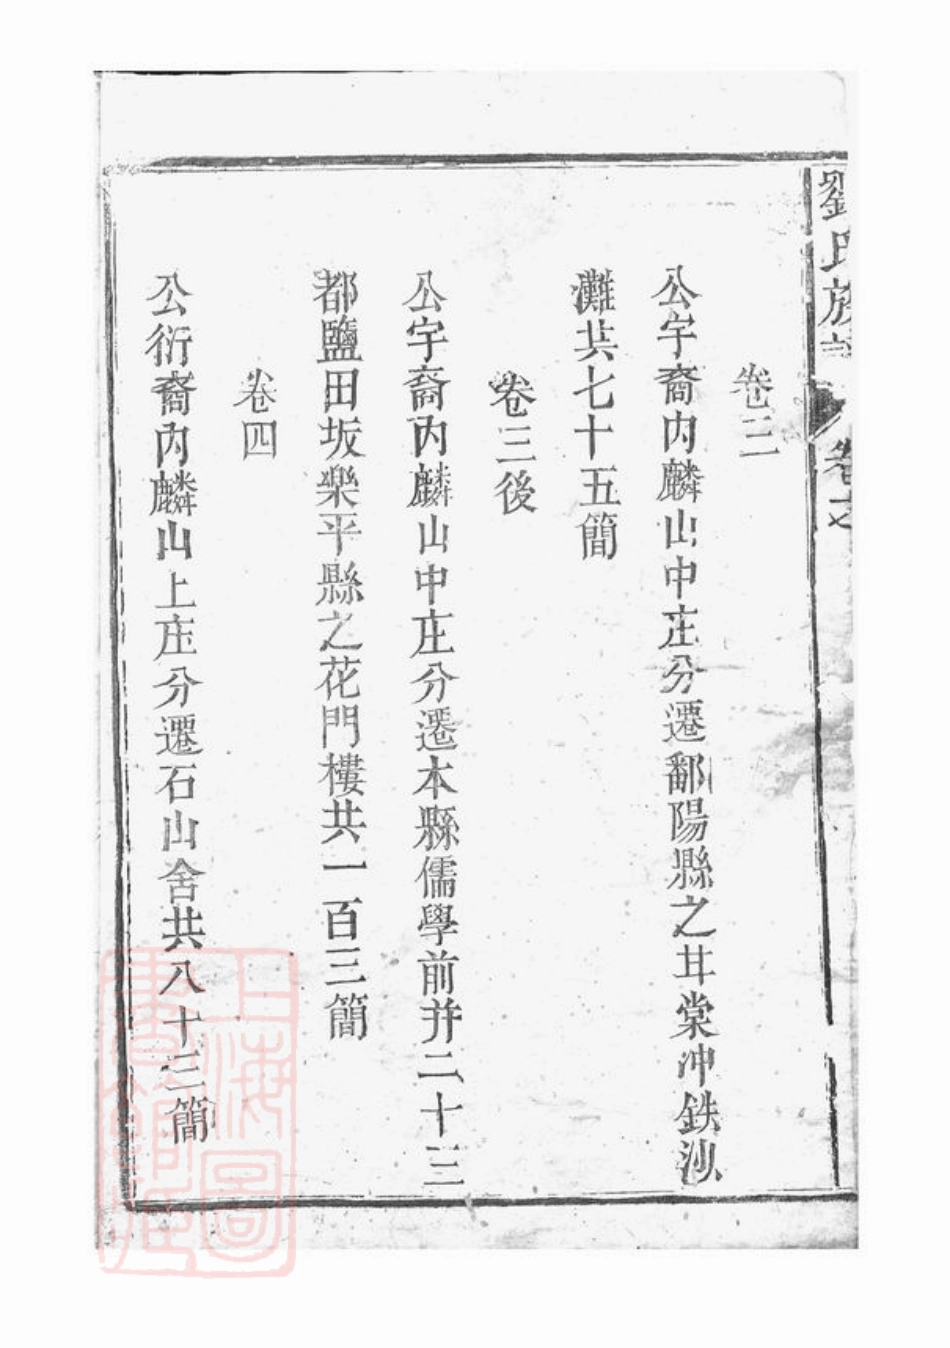 劉氏族
卷之
卷三
公宇裔內麟山中庄分遷鄱陽縣之甘棠冲鉄沙
灘共七十五簡
卷三後
公宇裔內麟山中庄分遷本縣儒學前并二十三
都鹽田坂樂平縣之花門樓共一百三簡
卷四
公衍裔內麟山上庄分遷石山舍共八十三簡
上海圖
書館藏